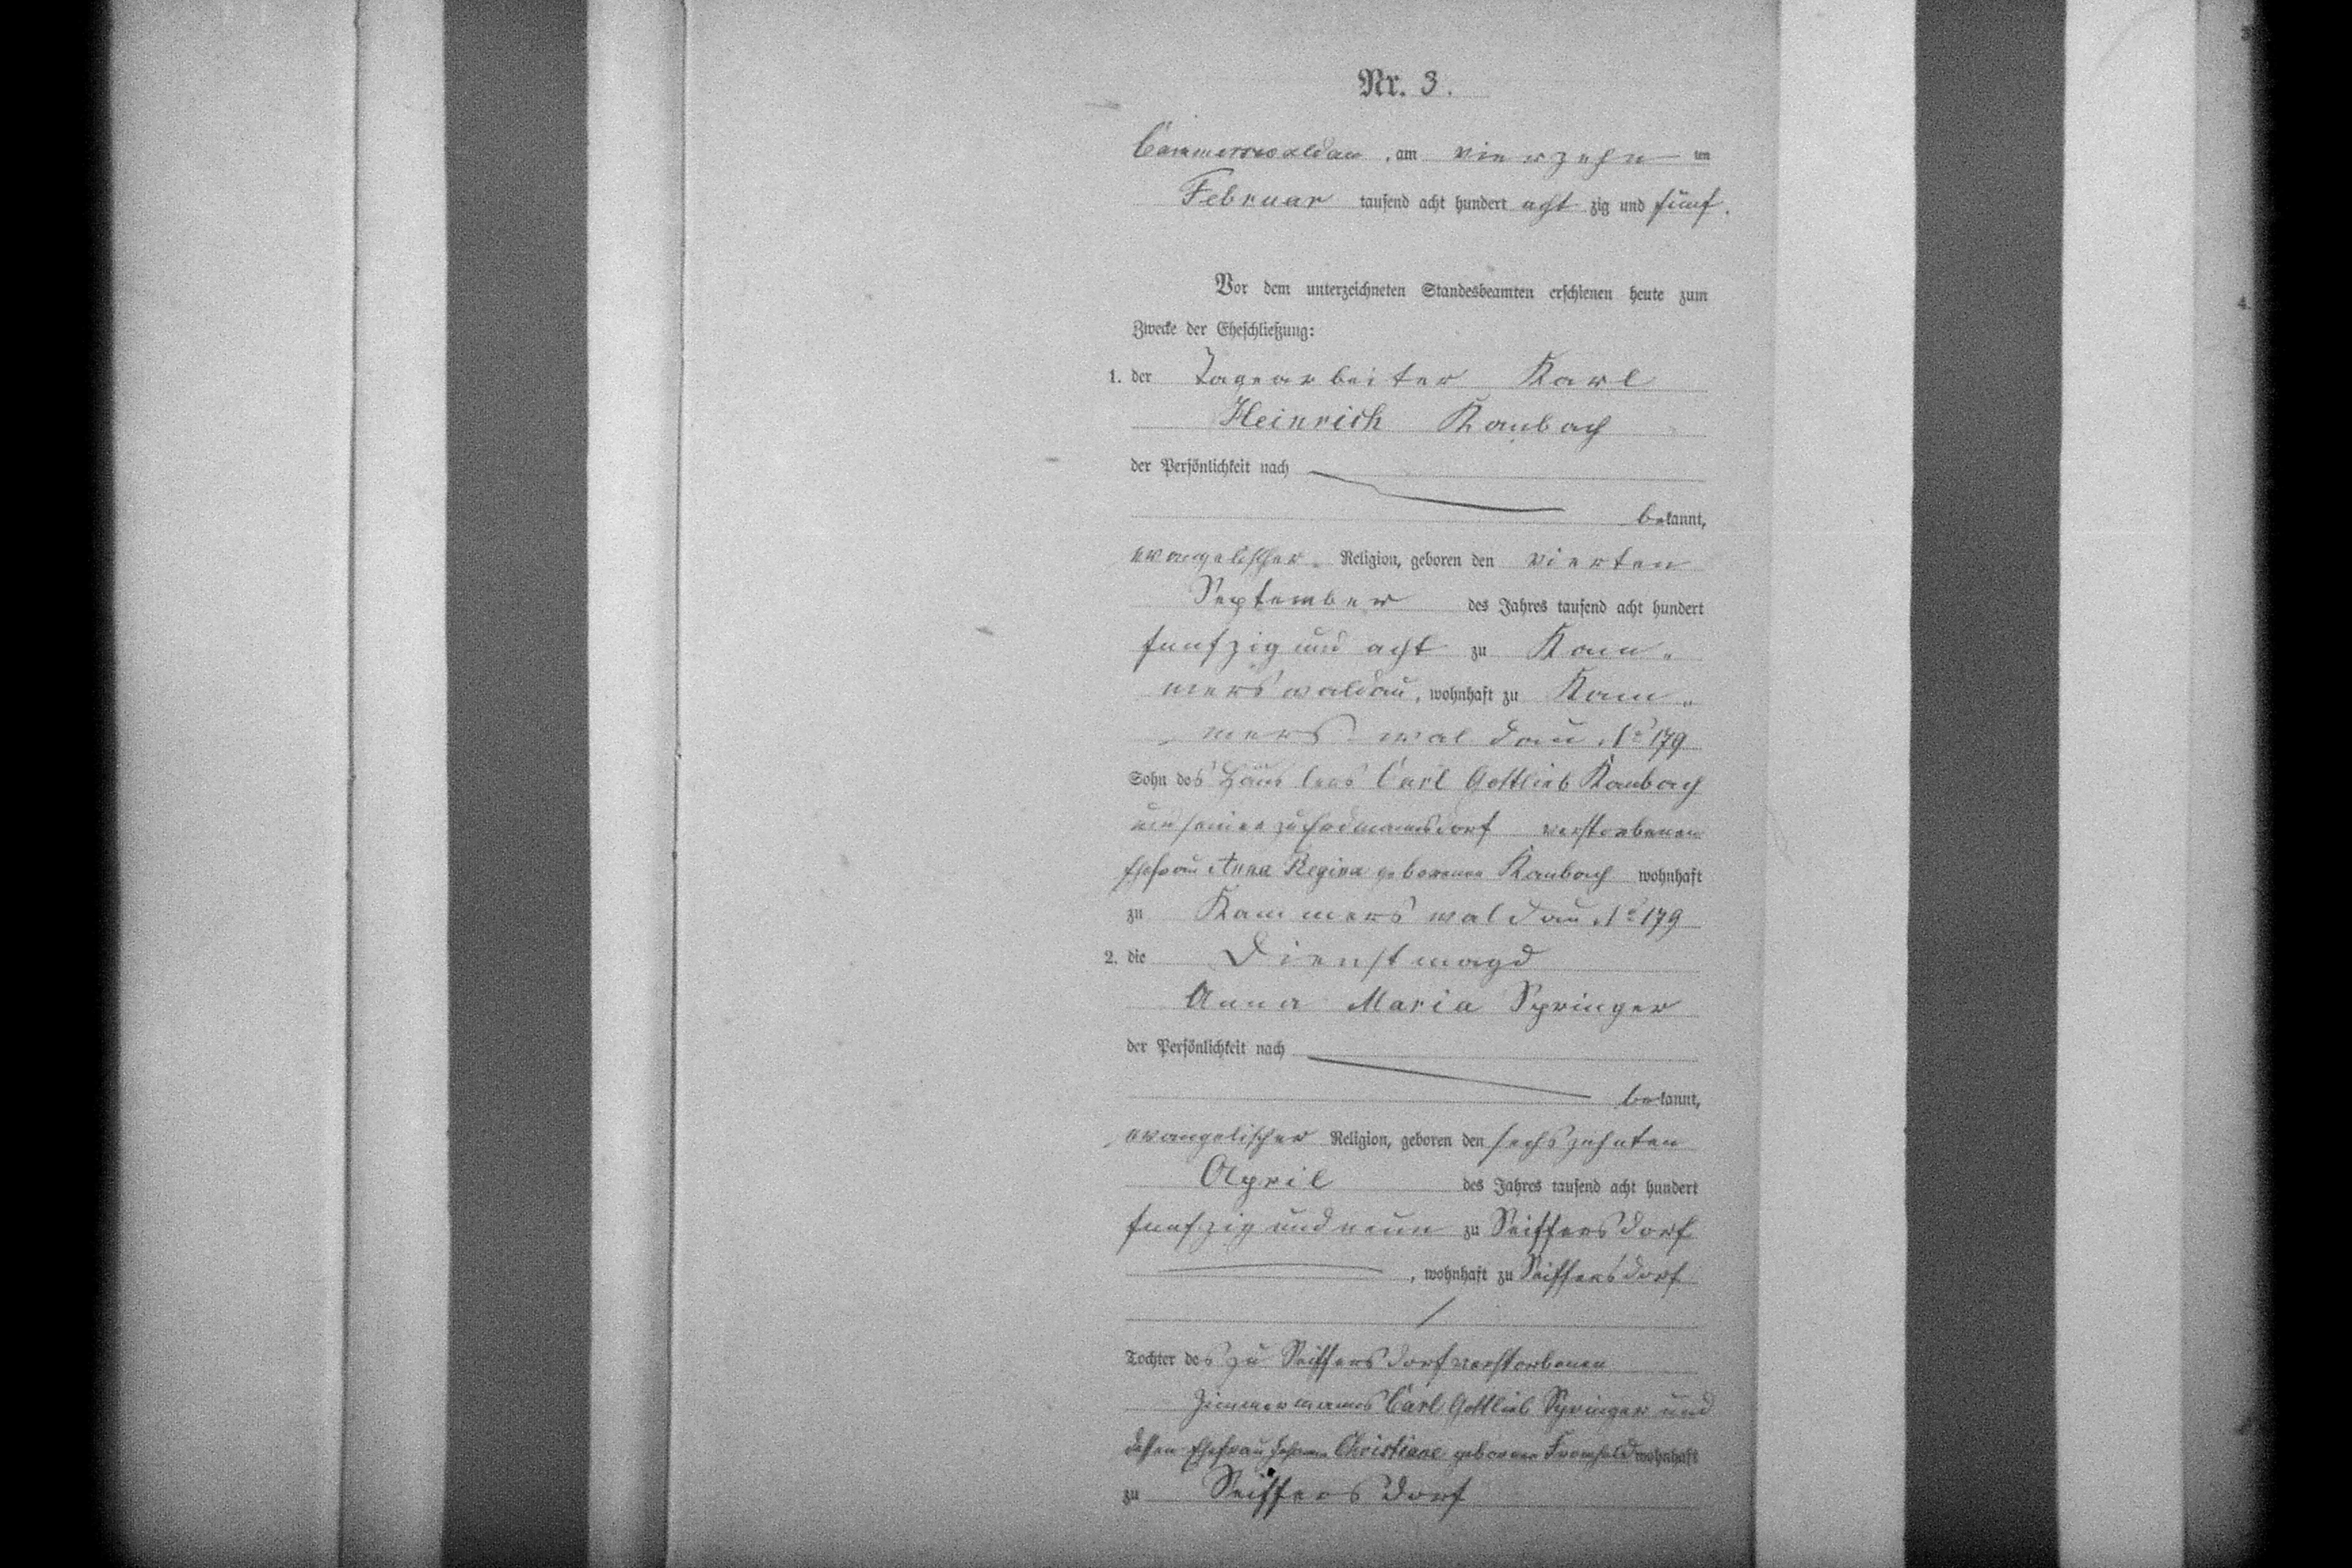 Nr. 3.
Cammerswaldau, am vierzehn ten
Februar tausend acht hundert acht zig und fünf.
Vor dem unterzeichneten Standesbeamten erschienen heute zum
Zwecke der Eheschließung:
1. der Tagearbeiter Karl
Heinrich Kambach
der Persönlichkeit nach
bekannt,
evangelischer Religion, geboren den vierten
September des Jahres tausend acht hundert
funfzig und acht zu Kam-
merswaldau, wohnhaft zu Kam-
merswaldau No 179
Sohn des Häuslers Carl Gottlieb Kambach
und seiner zu verstorbenen
Ehefrau Anna Regina geborenen Kambach wohnhaft
zu Kammerswaldau No 179
2. die Dienstmagd
Anna Maria Springer
der Persönlichkeit nach
bekannt,
evangelischer Religion, geboren den sechszehnten
April des Jahres tausend acht hundert
funfzig und neun zu Seiffersdorf
, wohnhaft zu Seiffersdorf
Tochter des zu Seiffersdorf verstorbenen
Zimmermanns Carl Gottlieb Springer und
dessen Ehefrau Christiane geborene wohnhaft
zu Seiffersdorf
3
4.